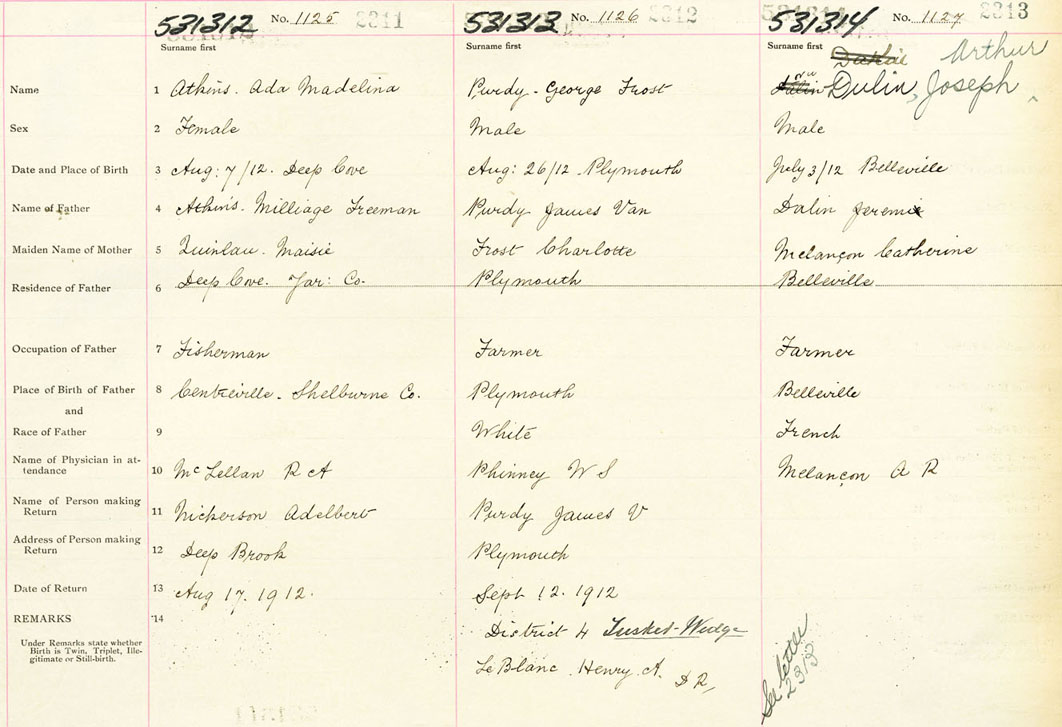 531312 No. 1125 2311
Surname first
531313 No. 1126 2312
Surname first
531314 No. 1127 2313
Surname first
Arthur
Name 1 Atkins. Ada Madelina Purdy - George Frost Dulin, Joseph
Sex 2 Female Male Male
Date and Place of Birth 3 Aug: 7/12. Deep Cove Aug: 26/12. Plymouth July 3/12 Belleville
Name of Father 4 Atkins. Milliage Freeman Purdy James Van Dalin Jeremie
Maiden Name of Mother 5 Quinlan. Maisie Frost Charlotte Melançon Catherine
Residence of Father 6 Deep Cove. Yar: Co. Plymouth Belleville
Occupation of Father 7 Fisherman Farmer Farmer
Place of Birth of Father 8 Centreville - Shelburne Co. Plymouth Belleville
and
Race of Father 9 White French
Name of Physician in at-
tendance 10 McLellan R A Phinney W S Melançon A R
Name of Person making
Return 11 Nickerson Adelbert Purdy James V
Address of Person making
Return 12 Deep Brook Plymouth
Date of Return 13 Aug 17. 1912. Sept 12. 1912
REMARKS 14
District 4 Tusket-Wedge
Under Remarks state whether
Birth is Twin, Triplet, Ille-
gitimate or Still-birth.
LeBlanc. Henry. A. D R,
See letter
2313